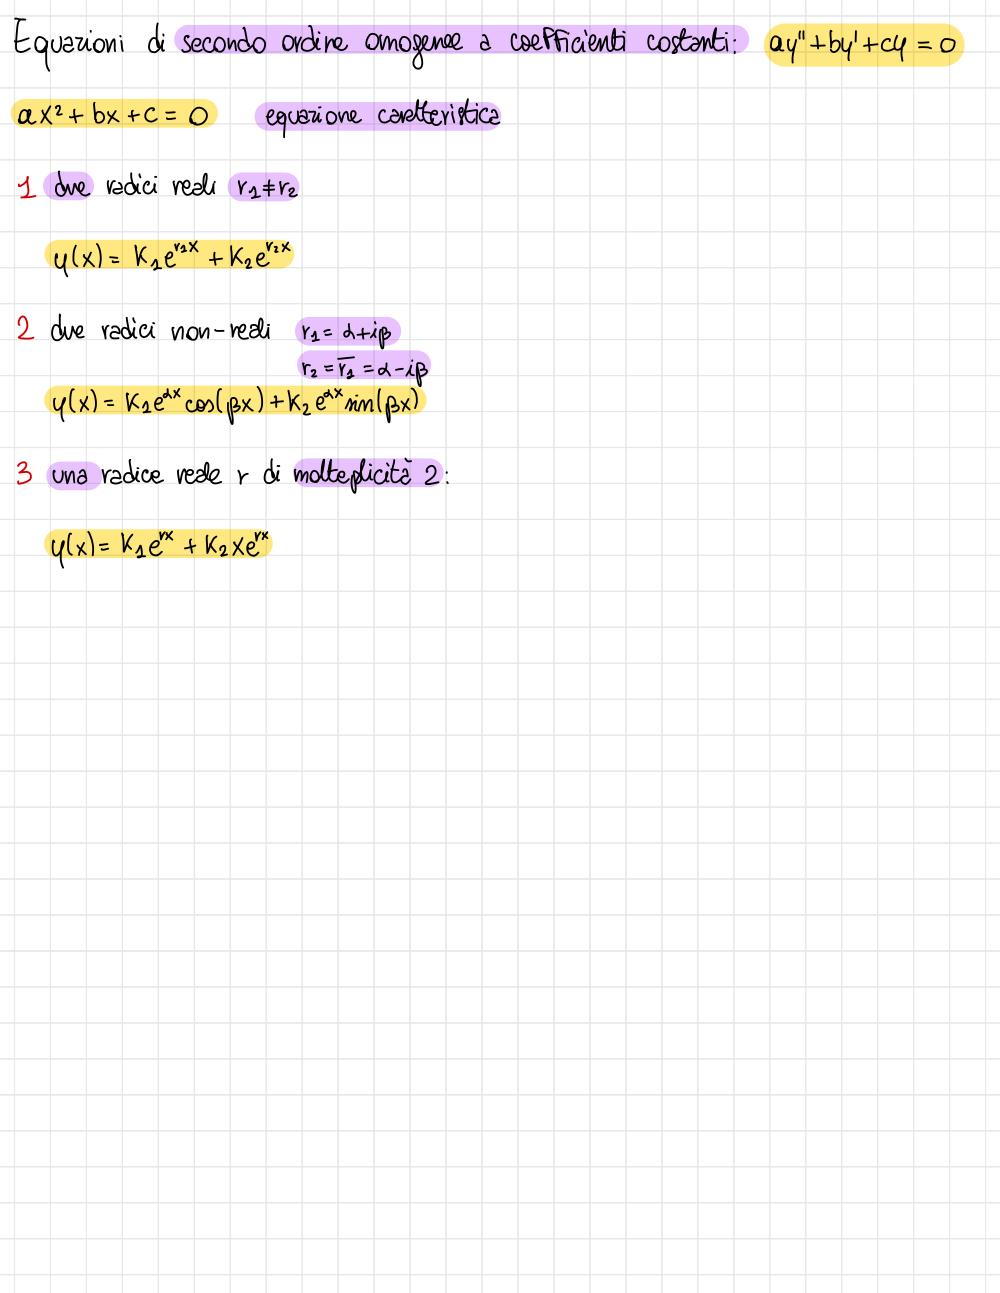 Equazioni di secondo ordine omogenee a coefficienti costanti: ay'' + by' + cy = 0
ax² + bx + c = 0 equazione caratteristica
1 due radici reali r₁ ≠ r₂
y(x) = K₁e^{r₁x} + K₂e^{r₂x}
2 due radici non-reali r₁ = α + iβ
r₂ = r̅₁ = α - iβ
y(x) = K₁e^{αx} cos(βx) + K₂e^{αx} sin(βx)
3 una radice reale r di molteplicità 2:
y(x) = K₁e^{rx} + K₂xe^{rx}